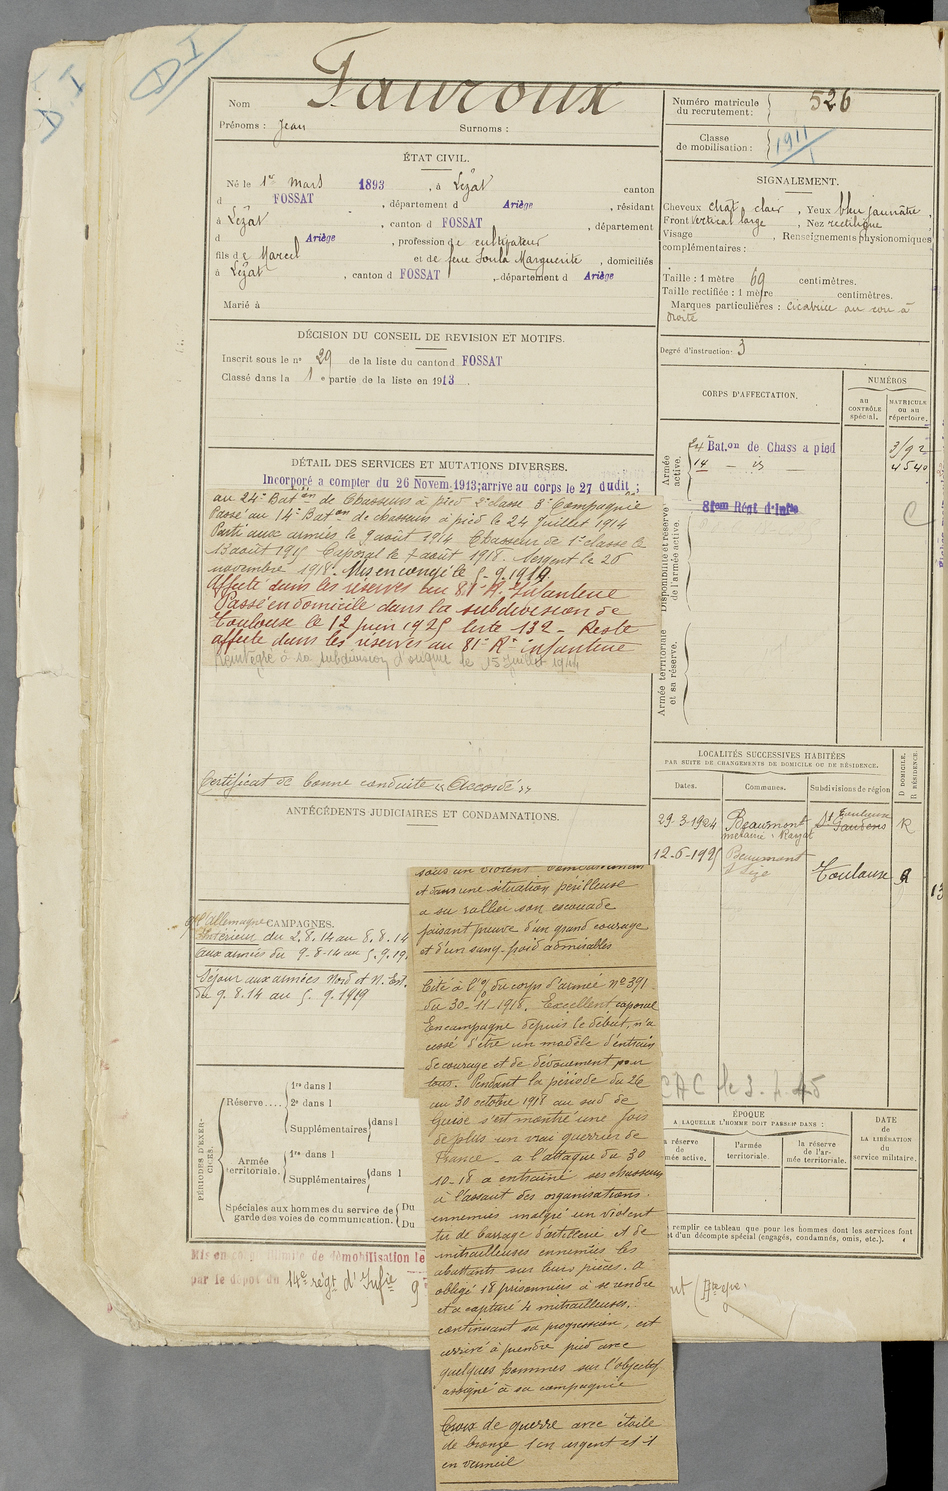 D I
D I
Nom Fauroux
Prénoms : Jean Surnoms :
ÉTAT CIVIL.
Né le 1er mars 1893, à Lézat canton
d FOSSAT, département d Ariège, résidant
à Lézat, canton d FOSSAT, département
d Ariège, profession de cultivateur
fils de Marcel et de feue Soula Marguerite, domiciliés
à Lézat, canton d FOSSAT, département d Ariège
Marié à
DÉCISION DU CONSEIL DE REVISION ET MOTIFS.
Inscrit sous le no 29 de la liste du canton d FOSSAT
Classé dans la 1e partie de la liste en 1913.
DÉTAIL DES SERVICES ET MUTATIONS DIVERSES.
Incorporé a compter du 26 Novem.1913;arrive au corps le 27 dudit ;
au 24e Baton de Chasseurs à pied 2e classe 3e Compagnie
Passé au 14e Baton de chasseurs à pied le 24 Juillet 1914
Parti aux armées le 9 aout 1914 Chasseur de 1e classe le
13 aout 1915 Caporal le 7 aout 1918. Sergent le 26
novembre 1918. Mis en congé le 5.9.1919
Affecté dans les réserves au 81e R. Infanterie
Passé en domicile dans la subdivision de
Toulouse le 12 juin 1925 liste 132 - Reste
affecté dans les réserves au 81e Rt infanterie
Réintégré à sa subdivision d'origine le 15 Juillet 1944
Certificat de bonne conduite « Accordé »
ANTÉCÉDENTS JUDICIAIRES ET CONDAMNATIONS.
CAMPAGNES.
l'Allemagne
Intérieur du 2.8.14 au 8.8.14
aux armées du 9-8-14 au 5.9.19
Séjour aux armées Nord et N. Est.
du 9.8.14 au 5.9.1919
PÉRIODES D'EXERCICES.
Réserve....
1re dans l
2e dans l
Supplémentaires dans l
Armée territoriale.
1re dans l
Supplémentaires dans l
Spéciales aux hommes du service de garde des voies de communication.
Du
Du
Mis en congé illimité de démobilisation le
par le dépôt du 14e régt d'Infie
sous un violent bombardement
et dans une situation périlleuse
a su rallier son escouade
faisant preuve d'un grand courage
et d'un sang-froid admirables
Cité à l'o/ du corps d'armée no 391
du 30-11-1918. Excellent caporal
En campagne depuis le début, n'a
cessé d'être un modèle d'entrain
de courage et de dévouement pour
tous. Pendant la période du 26
au 30 octobre 1918 au sud de
Guise s'est montré une fois
de plus un vrai guerrier de
France - a l'attaque du 30
10-18 a entraîné ses chasseurs
à l'assaut des organisations
ennemies malgré un violent
tir de barrage d'artillerie et de
mitrailleuses ennemies les
abattants sur leurs pièces. a
obligé 18 prisonniers à se rendre
et a capturé 4 mitrailleuses.
continuant sa progression, est
arrivé à prendre pied avec
quelques hommes sur l'objectif
assigné à sa compagnie
Croix de guerre avec étoile
de bronze 1 en argent et 1
en vermeil
Numéro matricule du recrutement : 526
Classe de mobilisation : 1911
SIGNALEMENT.
Cheveux chât. clair, Yeux bleu jaunâtre,
Front vertical large, Nez rectiligne
Visage , Renseignements physionomiques
complémentaires :
Taille : 1 mètre 69 centimètres.
Taille rectifiée : 1 mètre centimètres.
Marques particulières : cicatrice au cou à
droite
Degré d'instruction : 3
CORPS D'AFFECTATION.
NUMÉROS
au CONTRÔLE spécial.
MATRICULE ou au répertoire.
Armée active.
24e Bat.on de Chass a pied
14 — id —
4540
Disponibilité et réserve de l'armée active.
81em Régt d'Infie
C
Armée territoriale et sa réserve.
LOCALITÉS SUCCESSIVES HABITÉES
PAR SUITE DE CHANGEMENTS DE DOMICILE OU DE RÉSIDENCE.
Dates. Communes. Subdivisions de région D DOMICILE. R RÉSIDENCE
29-3-1924 Beaumont St Gaudens Toulouse R
12-6-1925 Beaumont s/ Lèze Toulouse
CAC le 3.4.45
ÉPOQUE
A LAQUELLE L'HOMME DOIT PASSER DANS :
DATE de LA LIBÉRATION du service militaire.
réserve de mée active.
l'armée territoriale.
la réserve de l'armée territoriale.
remplir ce tableau que pour les hommes dont les services font
t d'un décompte spécial (engagés, condamnés, omis, etc.).